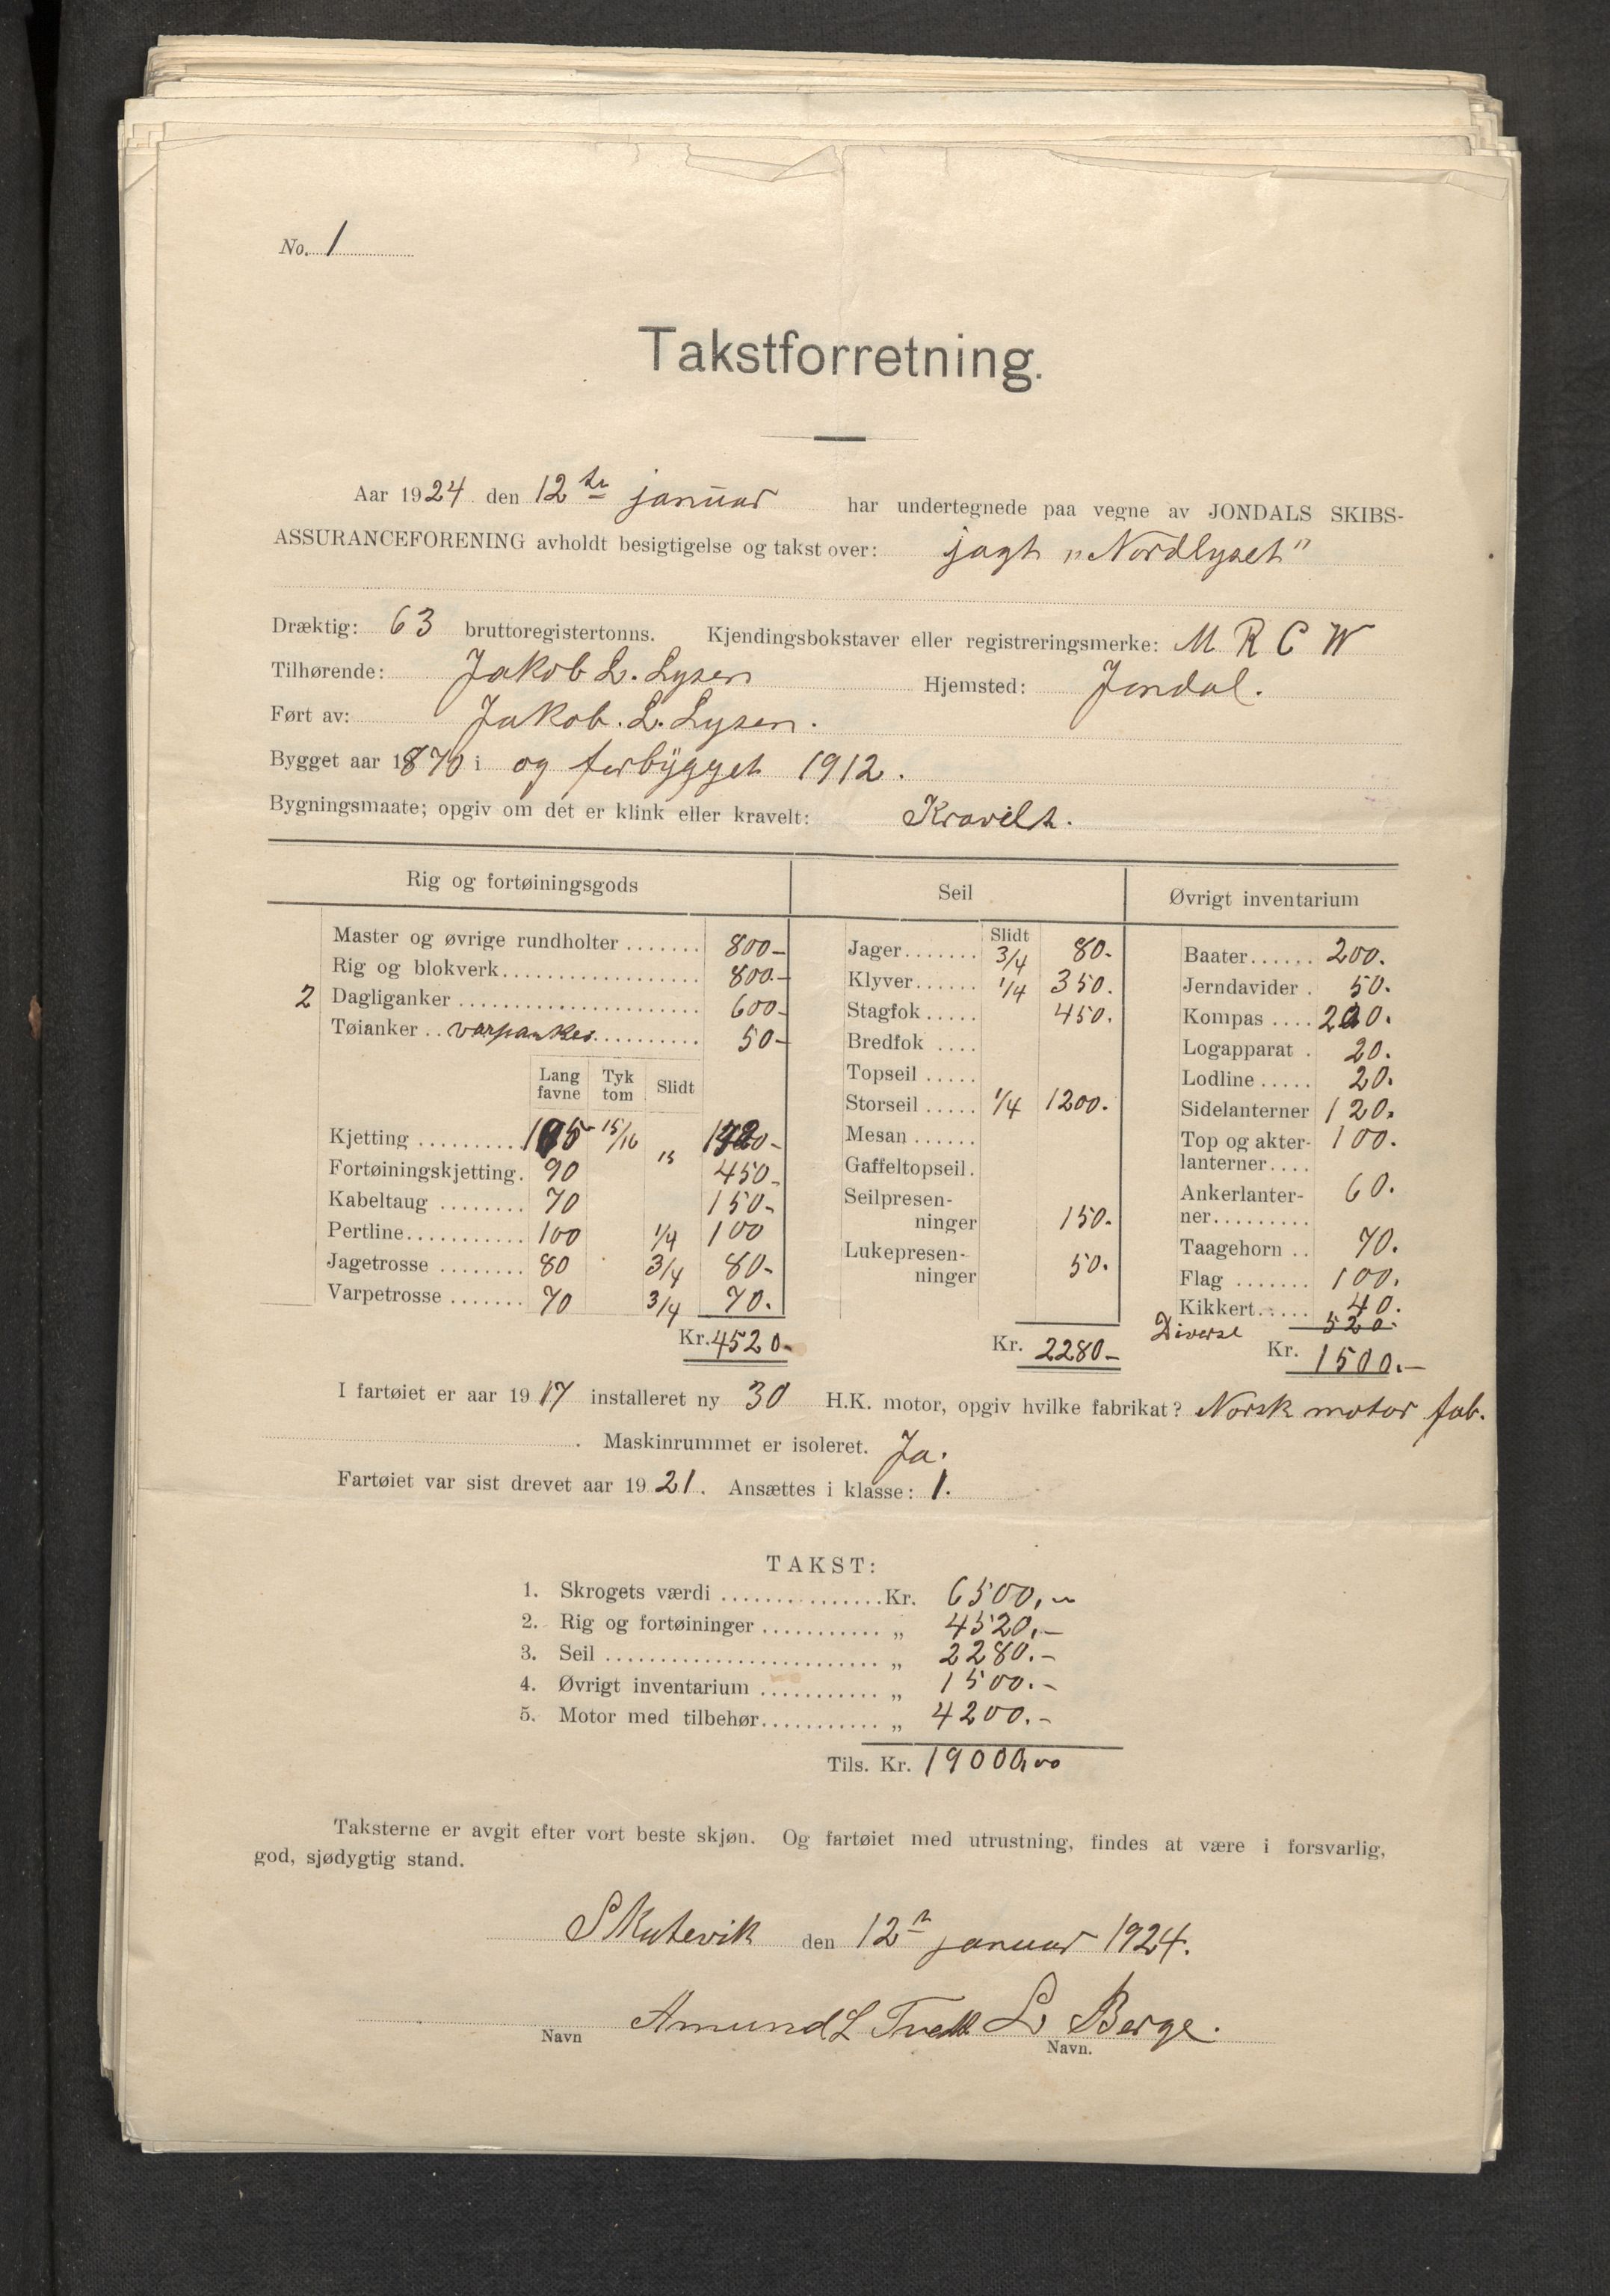 No. 1
Takstforretning.
Aar 1924 den 12te januar har undertegnede paa vegne av JONDALS SKIBS-
ASSURANCEFORENING avholdt besigtigelse og takst over: jagt „Nordlyset"
Dræktig: 63 bruttoregistertonns. Kjendingsbokstaver eller registreringsmerke: M R C W
Tilhørende: Jakob L. Lysen Hjemsted: Jondal.
Ført av: Jakob. L. Lysen.
Bygget aar 1870 i og forbygget 1912.
Bygningsmaate; opgiv om det er klink eller kravelt: Kravelt.
Rig og fortøiningsgods
Master og øvrige rundholter ....... 800-
Rig og blokverk................... 800.-
2 Dagliganker ....................... 600-
Tøianker .. varpanker.......... 50-
Lang favne Tyk tom Slidt
Kjetting ......... 15/16
Fortøiningskjetting. 90 450-
Kabeltaug ........ 70 150-
Pertline........... 100 1/4 100
Jagetrosse ........ 80 3/4 80-
Varpetrosse ....... 70 3/4 70.
Kr. 4520-
Seil
Slidt
Jager....... 3/4 80.
Klyver...... 1/4 350.
Stagfok ..... 450.
Bredfok ....
Topseil .....
Storseil ..... 1/4 1200.
Mesan ......
Gaffeltopseil.
Seilpresen-
ninger 150.
Lukepresen-
ninger 50.
Kr. 2280-
Øvrigt inventarium
Baater...... 200.
Jerndavider . 50.
Kompas .... 200.
Logapparat . 20.
Lodline ..... 20.
Sidelanterner 120.
Top og akter- 100.
lanterner....
Ankerlanter- 60.
ner.........
Taagehorn .. 70.
Flag ....... 100.
Kikkert..... 40.
Diverse 520.
Kr. 1500.-
I fartøiet er aar 1917 installeret ny 30 H.K. motor, opgiv hvilke fabrikat? Norsk motor fab.
. Maskinrummet er isoleret. Ja.
Fartøiet var sist drevet aar 1921. Ansættes i klasse: 1.
TAKST:
1. Skrogets værdi ...............Kr. 6500,-
2. Rig og fortøininger ........... „ 4520,-
3. Seil ......................... „ 2280.-
4. Øvrigt inventarium ........... „ 1500.-
5. Motor med tilbehør........... „ 4200.-
Tils. Kr. 19000,00
Taksterne er avgit efter vort beste skjøn. Og fartøiet med utrustning, findes at være i forsvarlig,
god, sjødygtig stand.
Skutevik den 12te januar 1924.
Amund L Tveit L Berge.
Navn Navn.